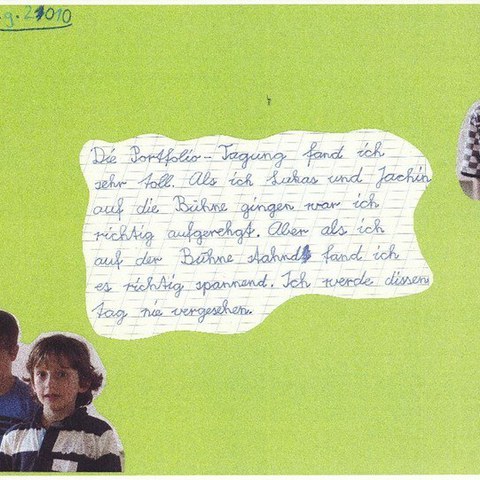 .9.2010
Die Portfolio-Tagung fand ich
sehr toll. Als ich Lukas und Jachin
auf die Bühne gingen war ich
richtig aufgerehgt. Aber als ich
auf der Bühne stahnd fand ich
es richtig spannend. Ich werde dissen
tag nie vergesehen.